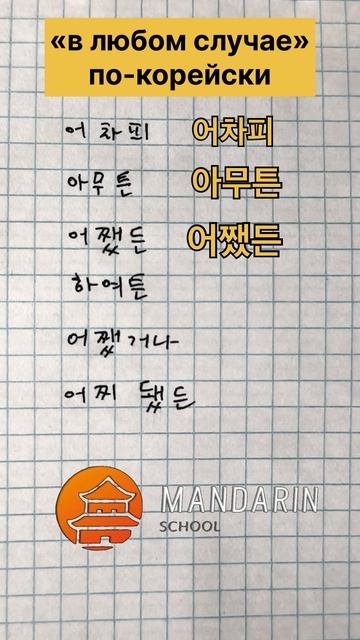 «в любом случае»
по-корейски
어차피 어차피
아무튼 아무튼
어쨌든 어쨌든
하여튼
어쨌거나
어찌 됐든
MANDARIN
SCHOOL